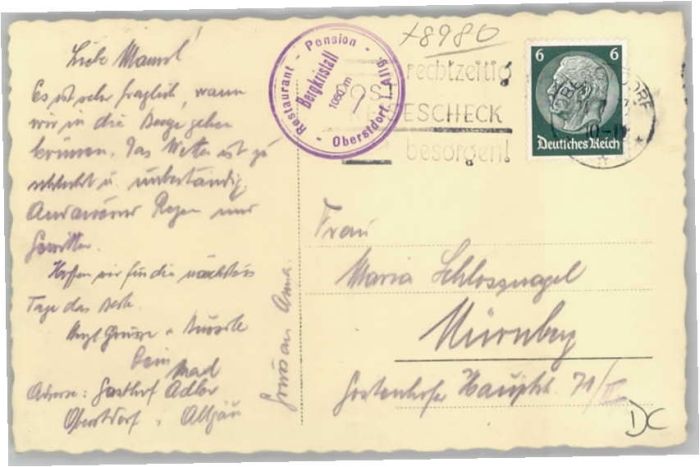 Es ist sehr fraglich, wann
wir in die Berge gehen
können. Das Wetter ist zu
schlecht u. unbeständig
Andauernd Regen und
Gewitter.
Hoffen wir für die nächsten
Tage das Beste.
Grüsse u. Küsse
Dein
Adresse: Gasthof Adler
Oberstdorf, Allgäu
Anna.
Restaurant - Pension - Bergkristall
1050 m
Oberstdorf Allg.
+8980
rechtzeitig
POST
REISESCHECK
besorgen!
6 6
Deutsches Reich
Frau
Maria Schlossnagel
Nürnberg
Gostenhofer Hauptstr. 71/II
DC